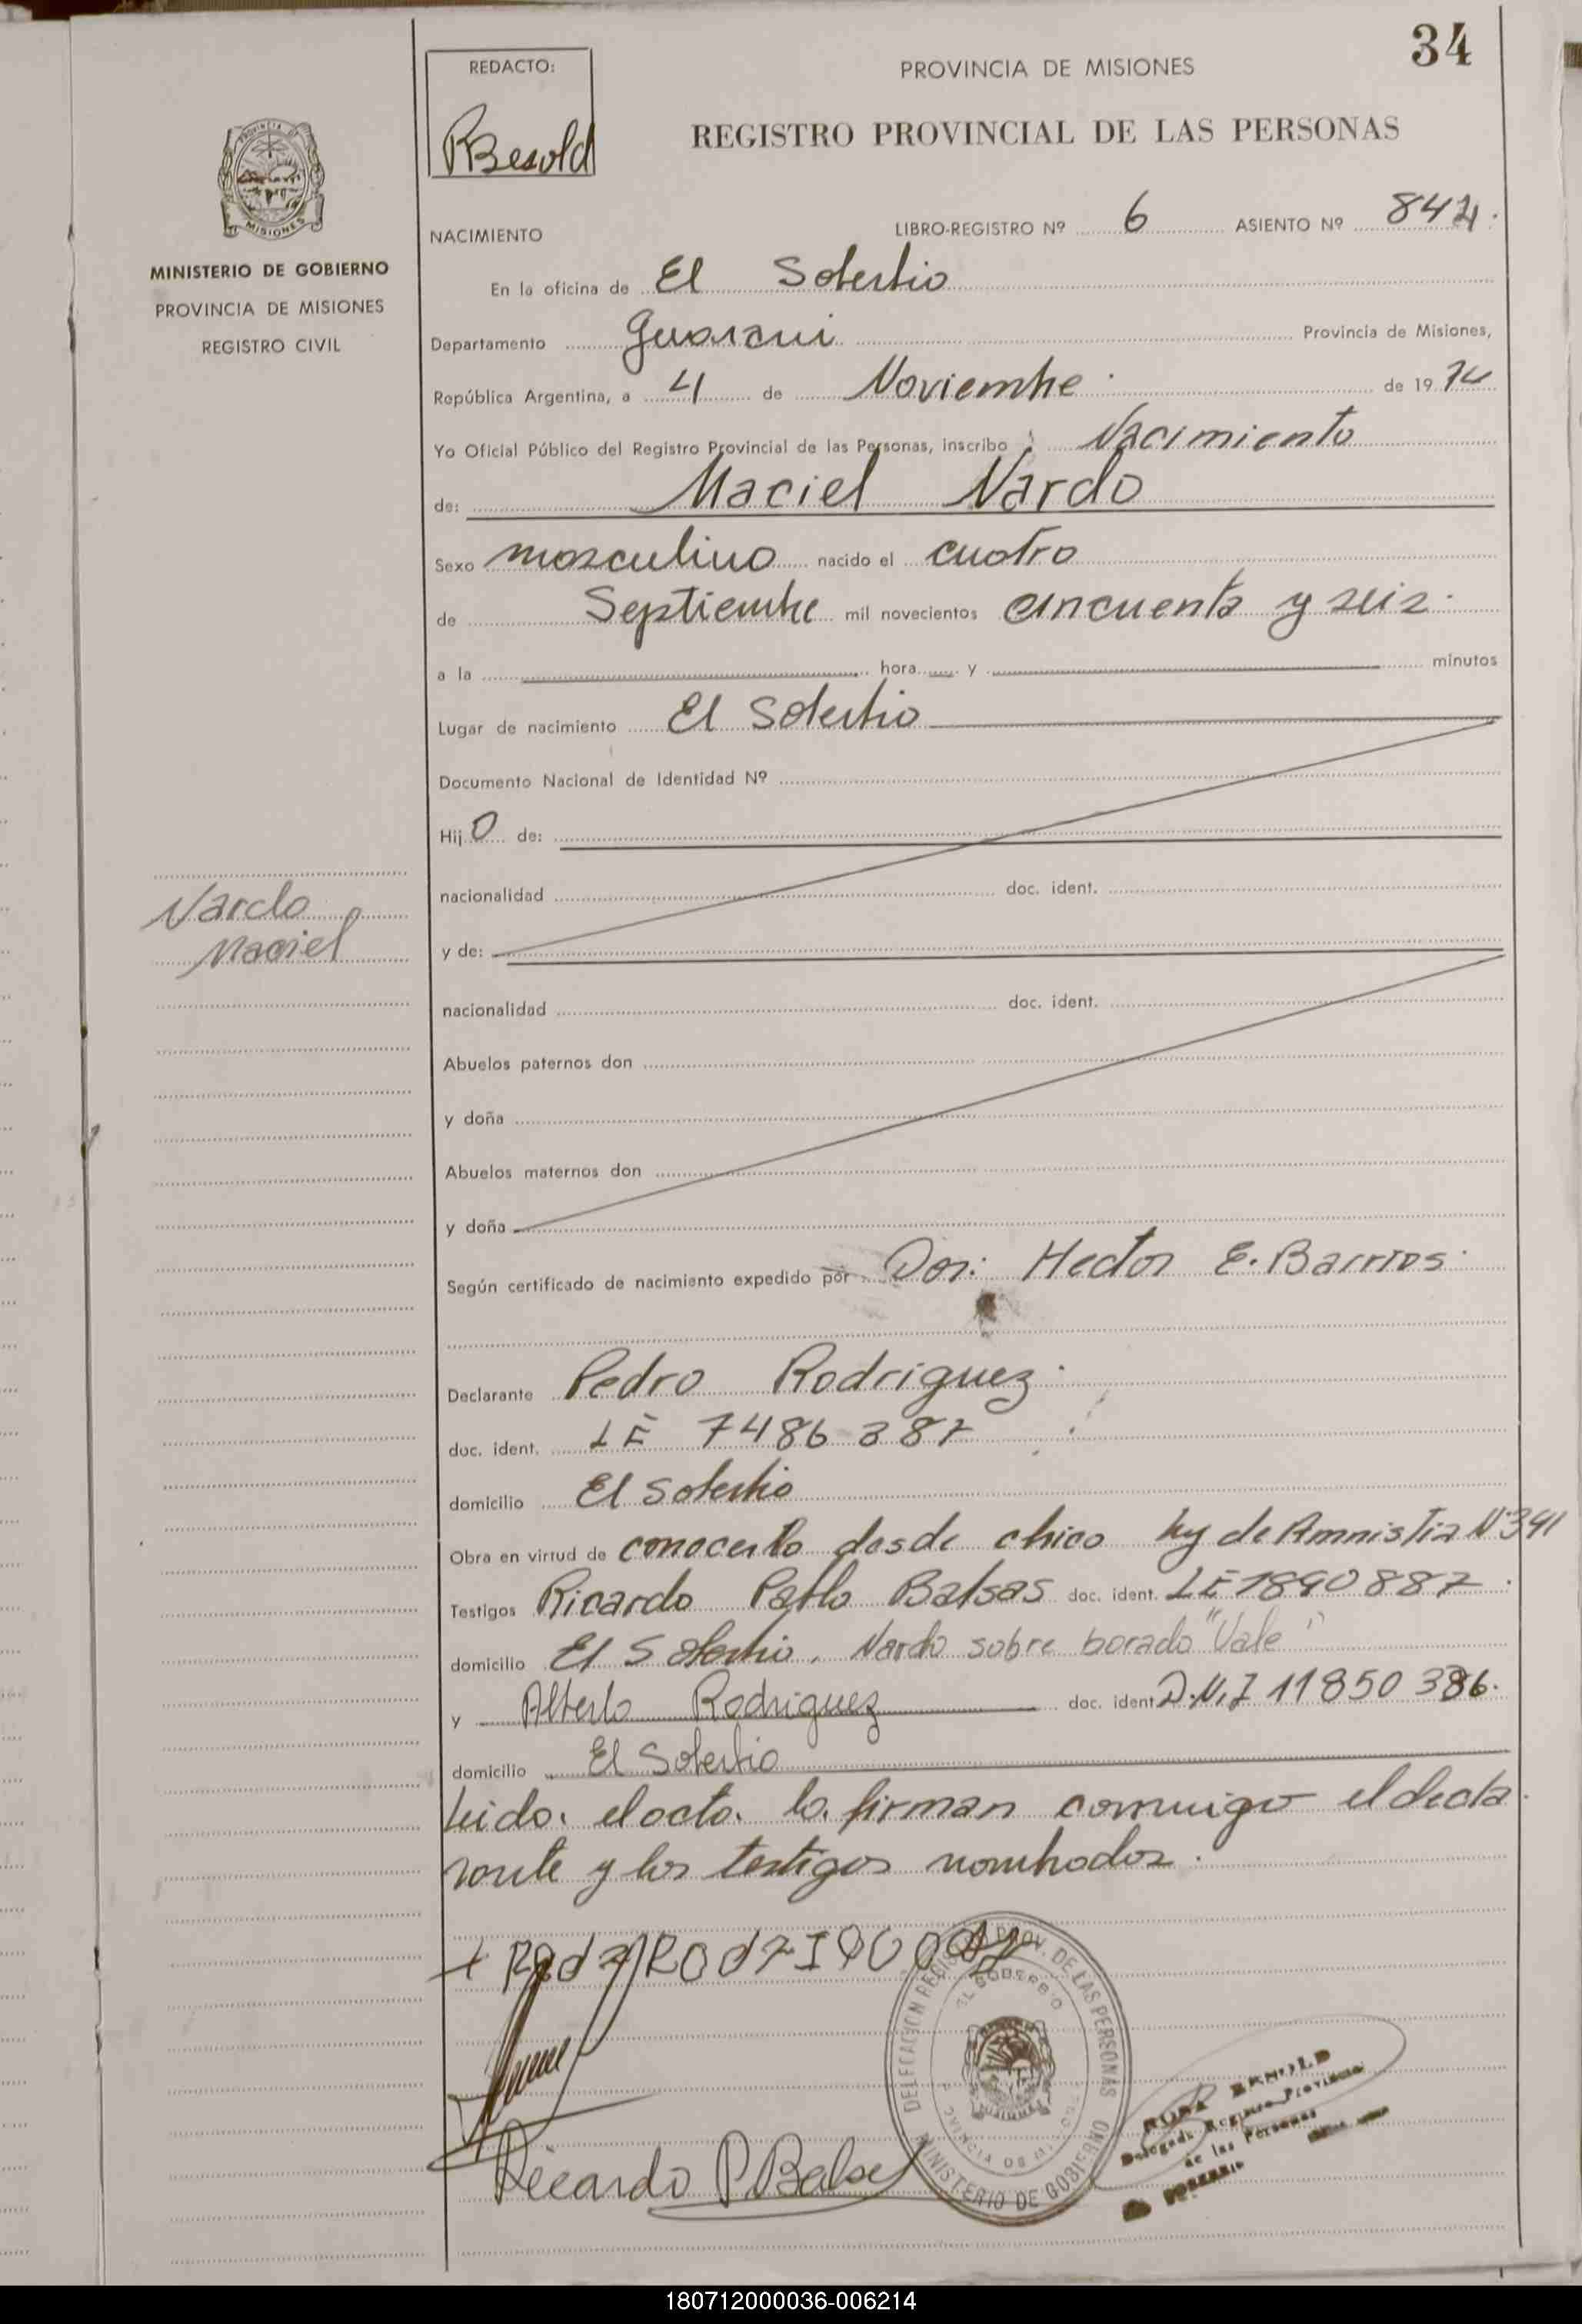 34
REDACTO:
PROVINCIA DE MISIONES
RBesold
REGISTRO PROVINCIAL DE LAS PERSONAS
MISIONES
MINISTERIO DE GOBIERNO
PROVINCIA DE MISIONES
REGISTRO CIVIL
NACIMIENTO
LIBRO-REGISTRO Nº 6 ASIENTO Nº 844
En la oficina de El Soberbio
Departamento Guarani Provincia de Misiones,
República Argentina, a 4 de Noviembre de 1974
Yo Oficial Público del Registro Provincial de las Personas, inscribo: Nacimiento
de: Maciel Nardo
Sexo masculino nacido el cuatro
de Septiembre mil novecientos cincuenta y seis.
a la hora y minutos
Lugar de nacimiento El Soberbio
Documento Nacional de Identidad Nº
Hijo de:
nacionalidad doc. ident.
Nardo
Maciel
y de:
nacionalidad doc. ident.
Abuelos paternos don
y doña
Abuelos maternos don
y doña
Según certificado de nacimiento expedido por Dor: Hector E. Barrios.
Declarante Pedro Rodriguez.
doc. ident. LE 7486387
domicilio El Soberbio
Obra en virtud de conocerlo desde chico ley de Amnistia Nº 341
Testigos Ricardo Pablo Balsas doc. ident. LE 7890887
domicilio El Soberbio, Nardo sobre borado "Vale"
y Alberto Rodriguez doc. ident. D.N.I 11850386.
domicilio El Soberbio
leido el acto lo firman conmigo el decla
rante y los testigos nombrados.
DELEGACION REGISTRO PROV. DE LAS PERSONAS
EL SOBERBIO
PROVINCIA DE MISIONES
MINISTERIO DE GOBIERNO
Ricardo P. Balsa
Delegada Registro Provincial
de las Personas
SOBERBIO
180712000036-006214